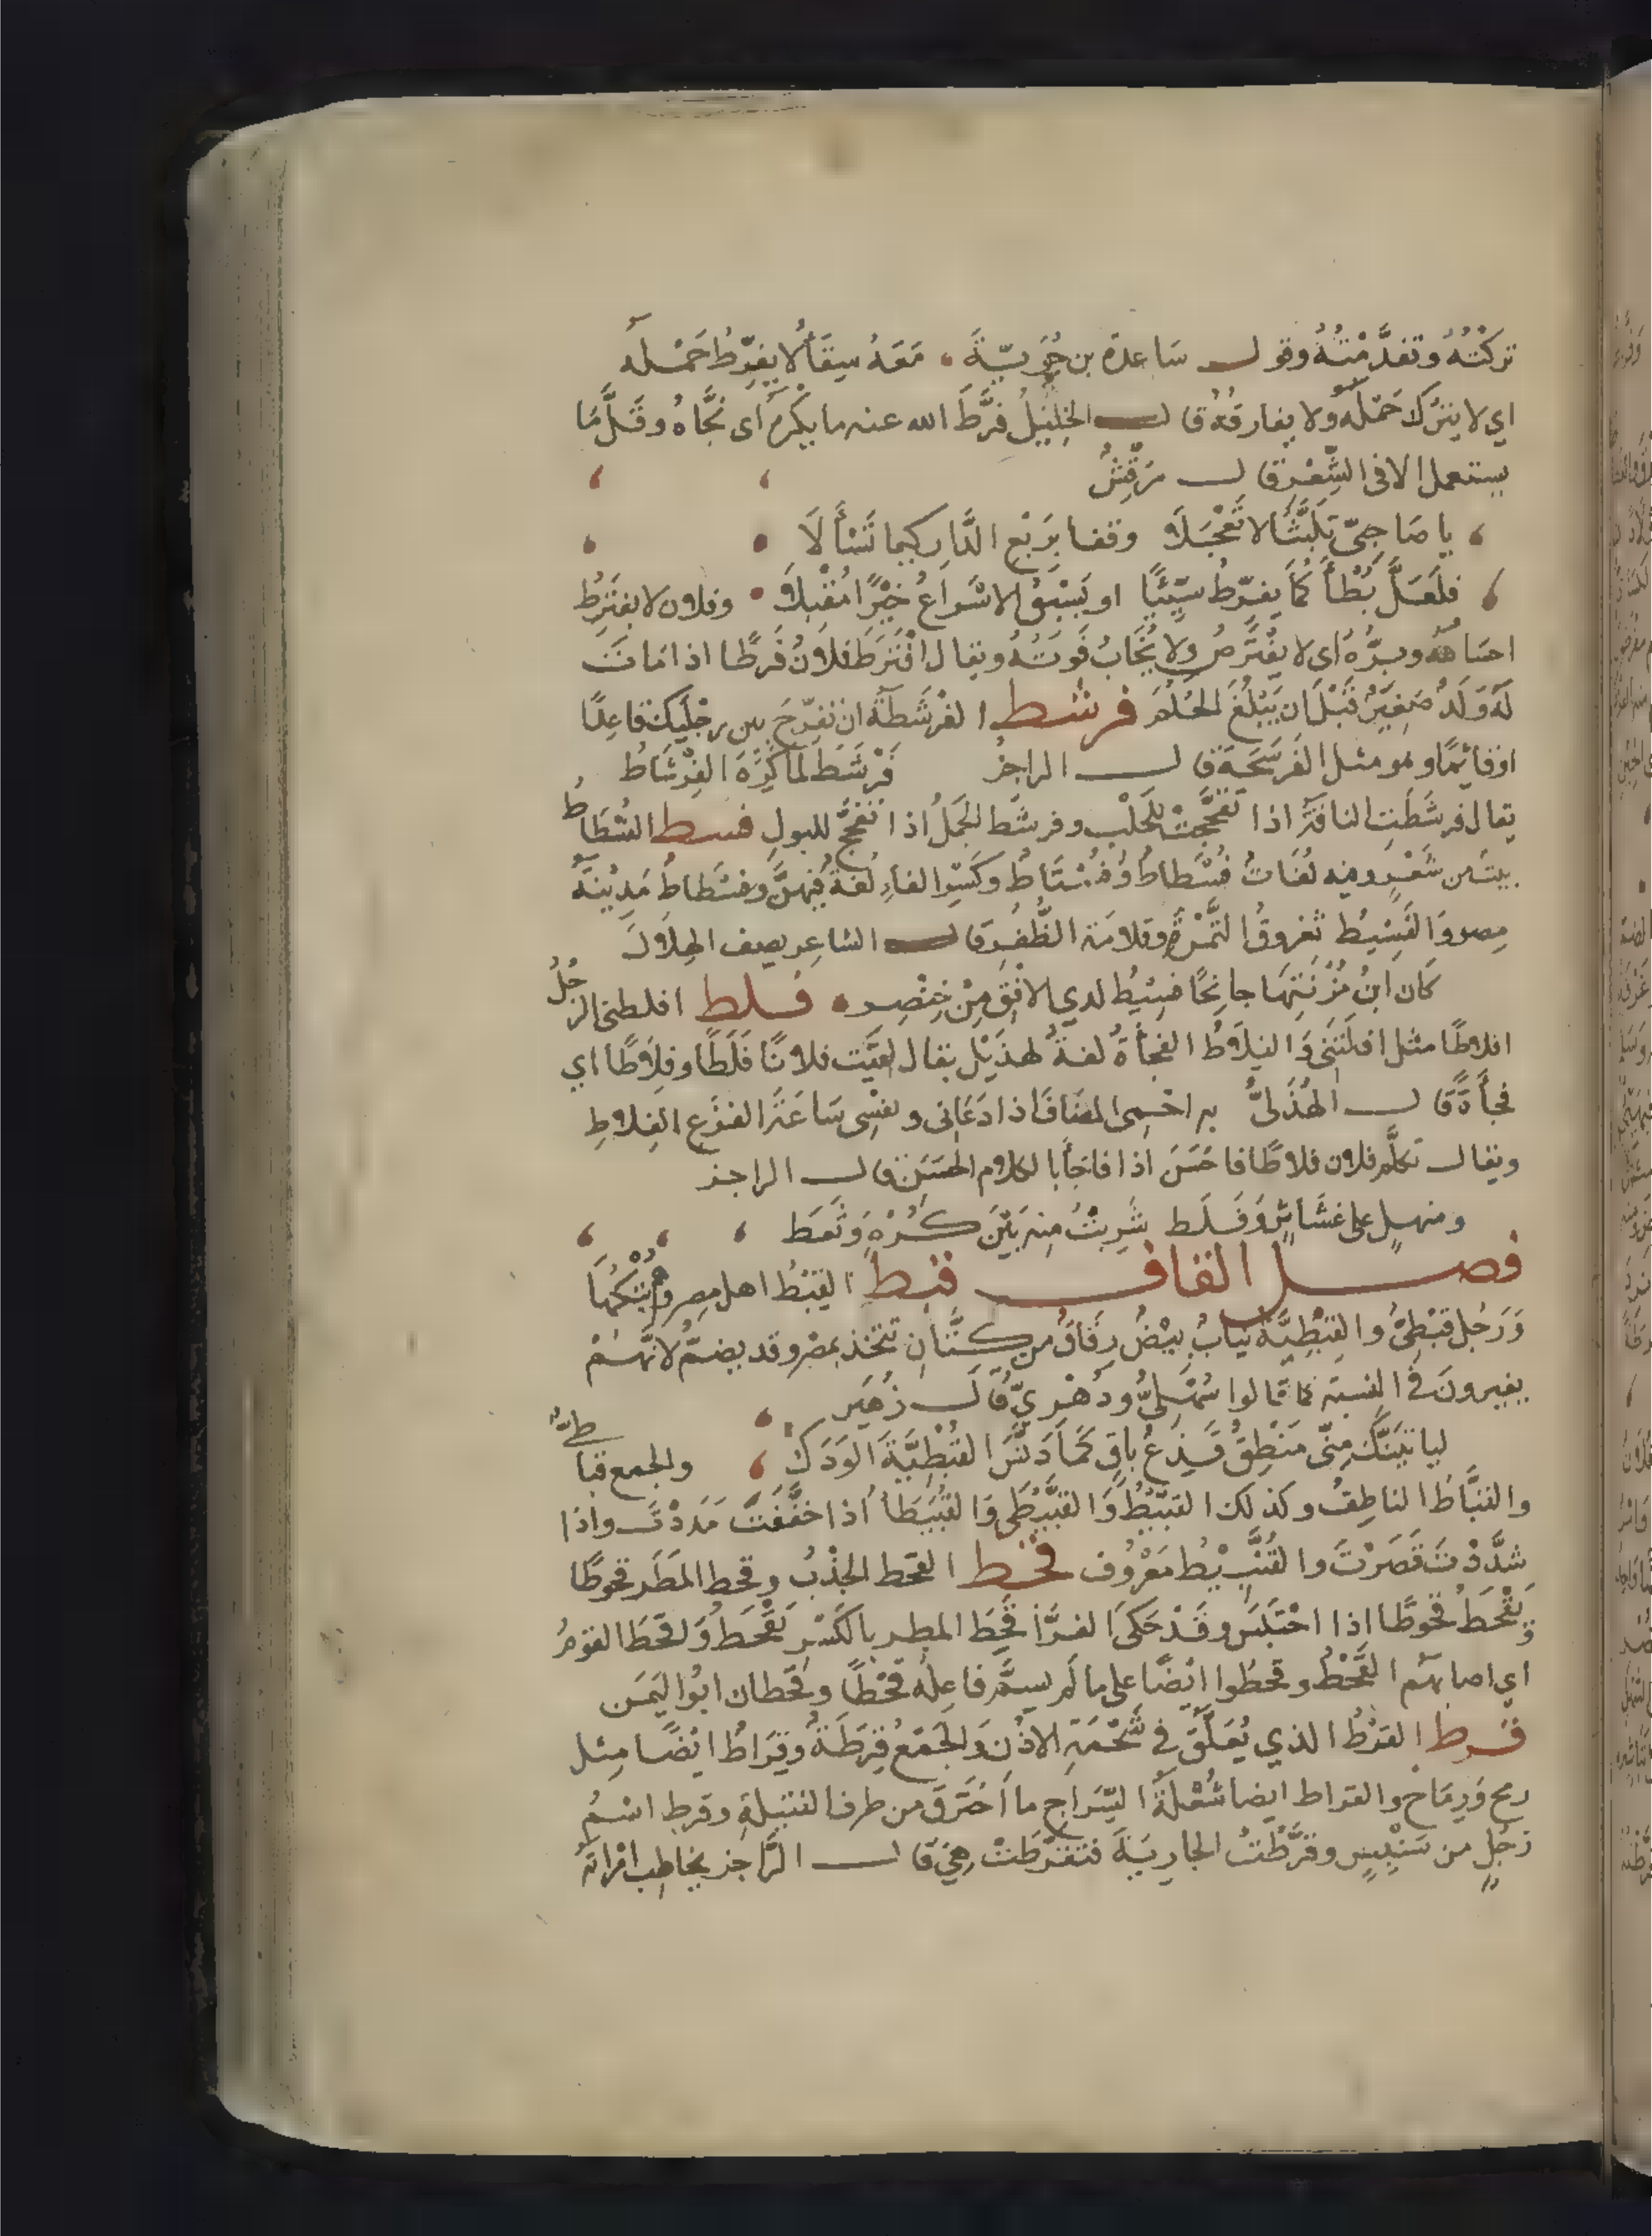 تركتُهُ وتقدَّمْتُهُ وقول ساعدة بن جُوَيّيةَ • مَعَهُ سِقَاءٌ لا يفرِّطُ حَمْلَهُ
اي لا يترك حَمْلَهُ ولا يفارقُهُ قال الخليلُ فرَّطَ الله عنه ما يكْرهُ أى نَجَّاهُ وقَلَّمَا
يستعمل الا فى الشِّعْر قال مُرَقِّشٌ
يا صَاحِبَىّ تَلَبَّثَا لا تَعْجَلَا وقفا بِرَبْعِ الدَّارِ كيما تَسْأَلَا
فلَعَلَّ بُطْأَكُمَا يفرِّطُ سَيِّئًا او يَسْبِقُ الاسْرَاعُ خَيْرًا مُقْبِلَا • وفلان لا يفتَرَطُ
احسَانُهُ وبِرُّهُ أى لا يفْتَرَصُ ولا يُخَافُ فَوتُهُ ويقال افْتَرَطَ فلانٌ فَرَطًا اذا مَاتَ
لَهُ وَلَدٌ صَغِيرٌ قَبْلَ ان يَبْلُغَ الحُلُمَ فرشط الفرْشَطَةُ ان تفرِّجَ بين رجْلَيكَ قاعِدًا
اوقائِمًا وهو مثل الفَرشَحَة قال الراجز فَرْشَطَ لمَا كُرِهَ الفِرْشَاطُ
يقال فرشَطَتِ الناقةُ اذا تفَحَّجَتْ للحَلْبِ وفرشَط الجَملُ اذا تفَحَّجَ للبولِ فسط الفُسْطَاطُ
بيتٌ من شَعْرٍ وفيه لُغَاتٌ فُسْطاطٌ وَفُسْتَاطٌ وكَسْرُ الفاءِ لُغَةٌ فِيهنَّ وفسْطاطُ مَدِينَةُ
مِصر وَالفَسِيطُ ثفروقُ التَّمْرَةِ وقلامَة الظُّفُر قال الشاعِر يصِف الهِلَالَ
كَان ابْنَ مُزْنَتِهَا جانِحًا فَسِيطٌ لدي الافقِ مِنْ خِنْصِر • فلط افلطنى الرجُلُ
افلاطًا مثل افلتَنَى وَالفِلَاطُ الفجأةُ لغةٌ لهذَيْل يقال لقيَت فلانًا فَلَطًا وفِلَاطًا اي
فجأةً قال الهُذَلىُّ به احْمِى المضَافَ اذا دَعَانى ونفسْى سَاعَةَ الفَزَعِ الفِلَاطِ
ويقال تكلَّم فلان فلاطًا فاحْسَنَ اذا فاجَأ بالكلام الحسَن قال الراجز
ومنهلٍ على غشَاشٍ وَفَلَط شَرِبتُ مِنه بَيْنَ كُرْهٍ وَثَعَط
فصل القاف قبط القِبْطُ اهل مصر وهُمْ بُنْكُهَا
وَرَجُل قبْطِىٌّ والقِبْطِيَّةُ ثيابٌ بِيْضٌ رِقَاقٌ من كتَّان تتخذ بمصر وقد يضمُّ لانَّهُمْ
يغيرونَ فى النسبَةِ كما قالوا سُهْلِىٌّ ودُهْرِيٌّ قال زُهَير
ليأتيَنَّكَ مِنّى مَنْطِقٌ قَذِعٌ باقٍ كَمَا دَنَّسَ القُبْطِيَّةَ الوَدَكُ والجمع قباطىُّ
والقبَّاط الناطِفُ وكذلك القبَّيْطُ وَالقبَّيْطَى وَالقبَيْطَاُ اذا خفَّفْتَ مَدَدْتَ واذا
شدَّدْتَ قَصَرْتَ والقُنَّبِيْطُ مَعْرُوف قحط القحط الجَذْبُ وقحط المَطَر قحوطًا
وَيَقْحَطُ قحُوطًا اذا احْتَبَسَ وقَدْ حَكَى الفرَّا قَحِطَ المطر بالكَسْرِ يَقْحَطُ وَاقحَطَ القومُ
اي اصابهُم القَحْطُ وقحطُوا ايْضًا على ما لَم يسمَّ فاعِلُه قَحْطًا وقحطان ابُو اليَمَن
قرط القرْطُ الذي يُعَلَّقُ في شَحْمَةِ الاذُنِ وَالجَمْعُ قِرَطَةٌ وقِرَاطٌ ايْضًا مِثل
رمح وَرِمَاحٌ والقراط ايضا شُعْلَةُ السِّرَاجِ ما احْتَرَقَ من طرف الفتيلةِ وقرط اسْمُ
رَجُلٍ من سِنْبِسٍ وقرَّطْتُ الجارِيَةَ فتقرَّطَتْ هِىَ قال الرَّاجز يخاطِب امْرَاتَهُ